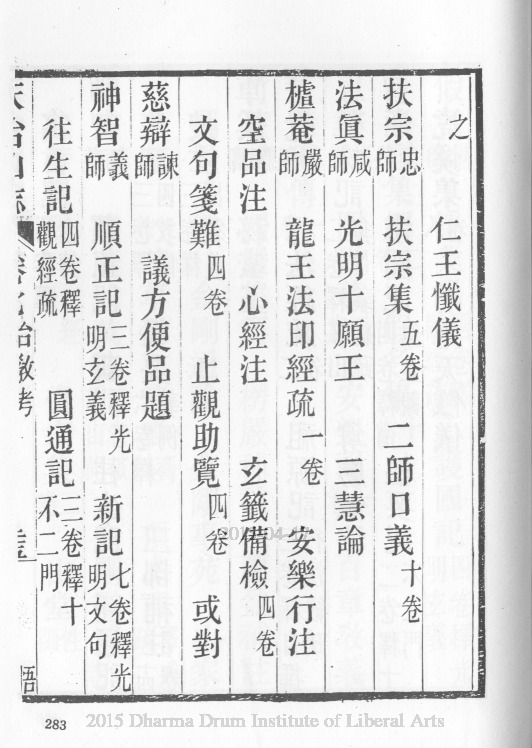 之　仁王懺儀
扶宗忠師　扶宗集五卷　二師口義十卷
法眞咸師　光明十願王　三慧論
櫨菴嚴師　龍王法印經疏一卷　安樂行注
空品注　心經注　玄籤備檢四卷
文句箋難四卷　止觀助覽四卷　或對
慈辯諫師　議方便品題
神智義師　順正記三卷釋光明玄義　新記七卷釋光明文句
往生記四卷釋觀經疏　圓通記三卷釋十不二門
天台山志
台教考
283
2015 Dharma Drum Institute of Liberal Arts